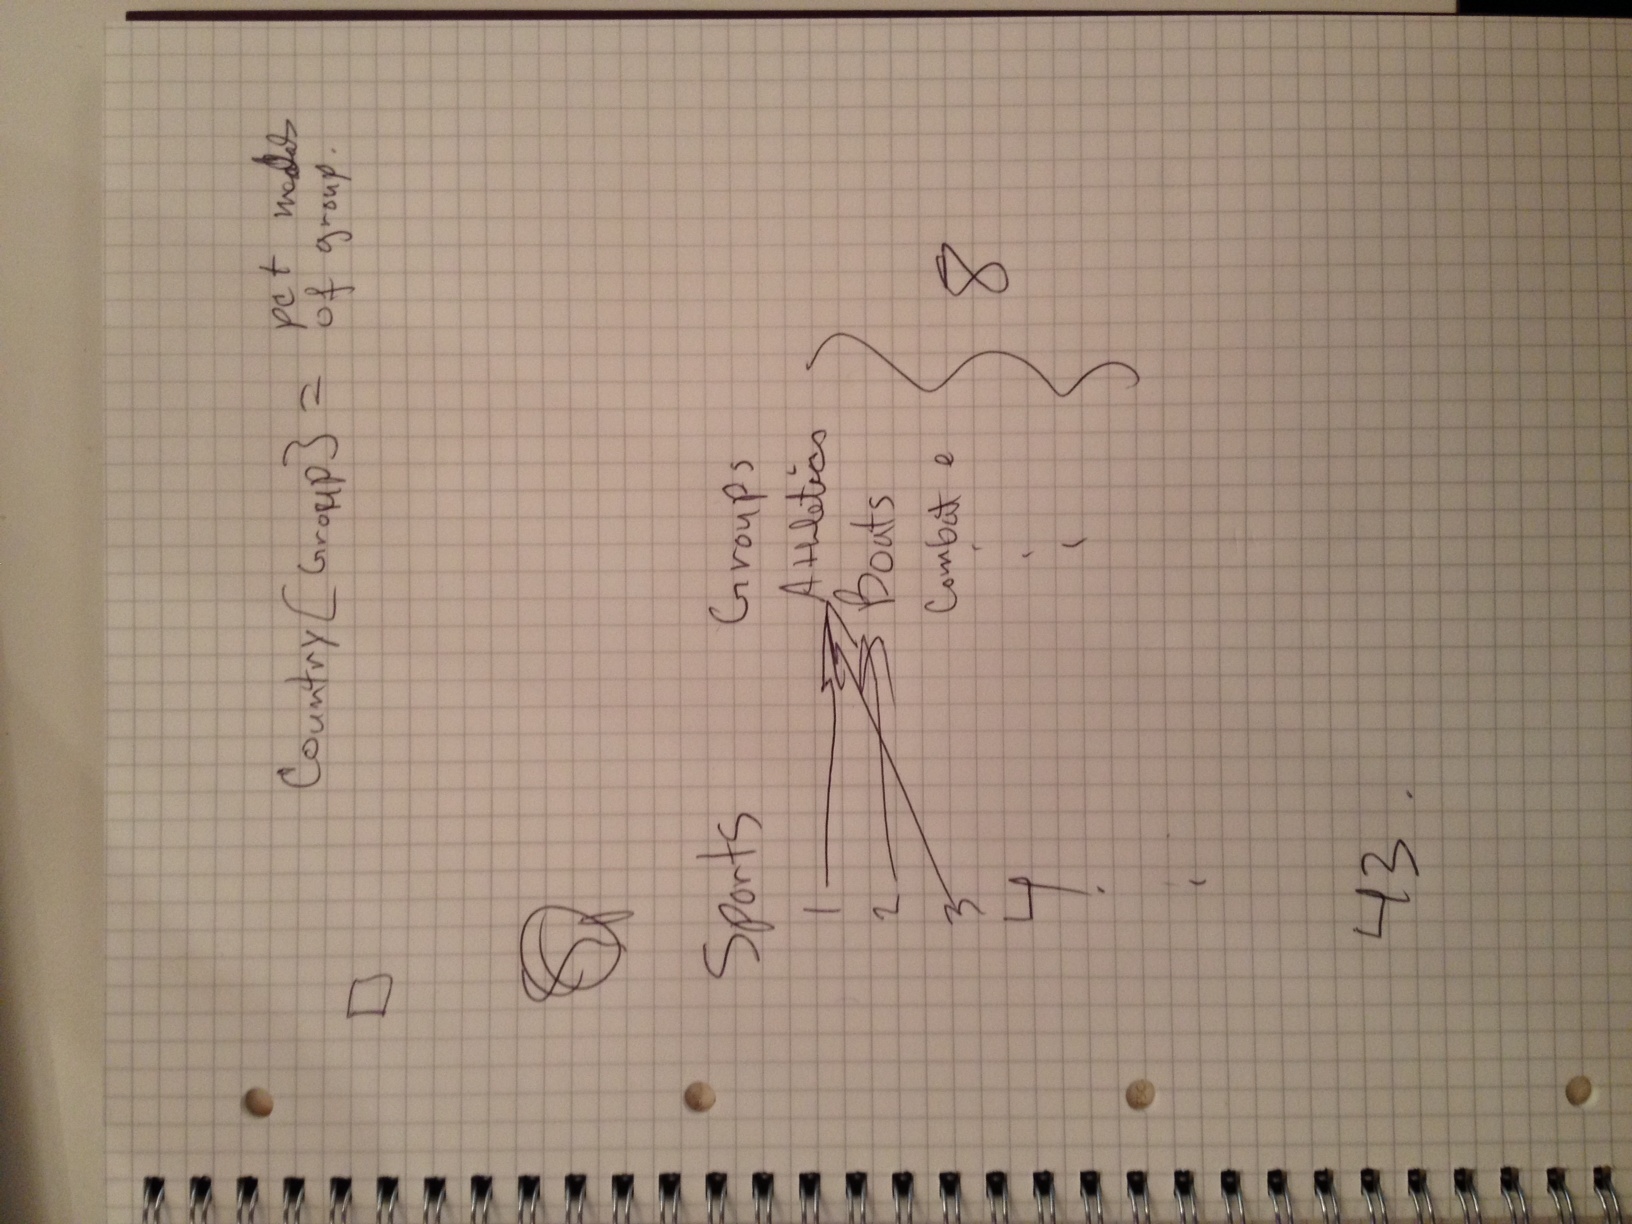 Country[Group} = pct medals
of group.
Sports Groups
1 Athletics
2 Boats
3 Combat
4
8
43.